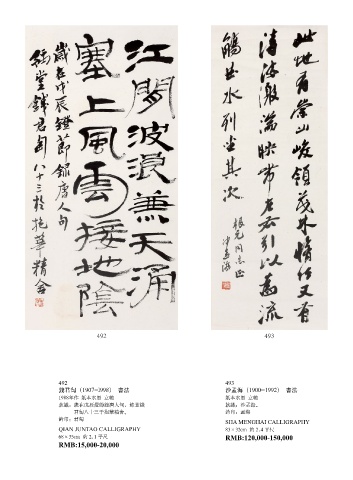 江間波浪兼天涌
塞上風雲接地陰
歲在戊辰鐙節錄唐人句
豫堂錢君匋八十三於抱華精舍
此地有崇山峻領茂林脩竹又有
清流激湍映帶左右引以為流
觴曲水列坐其次
同志正
沙孟海
492
493
492
錢君匋（1907-1998） 書法
1988年作 紙本水墨 立軸
款識：歲在戊辰鐙節錄唐人句，豫堂錢
君匋八十三於抱華精舍。
鈐印：君匋
QIAN JUNTAO CALLIGRAPHY
68×35cm 約 2.1 平尺
RMB:15,000-20,000
493
沙孟海（1900—1992） 書法
紙本水墨 立軸
款識：沙孟海。
鈐印：孟海
SHA MENGHAI CALLIGRAPHY
83×33cm 約 2.4 平尺
RMB:120,000-150,000